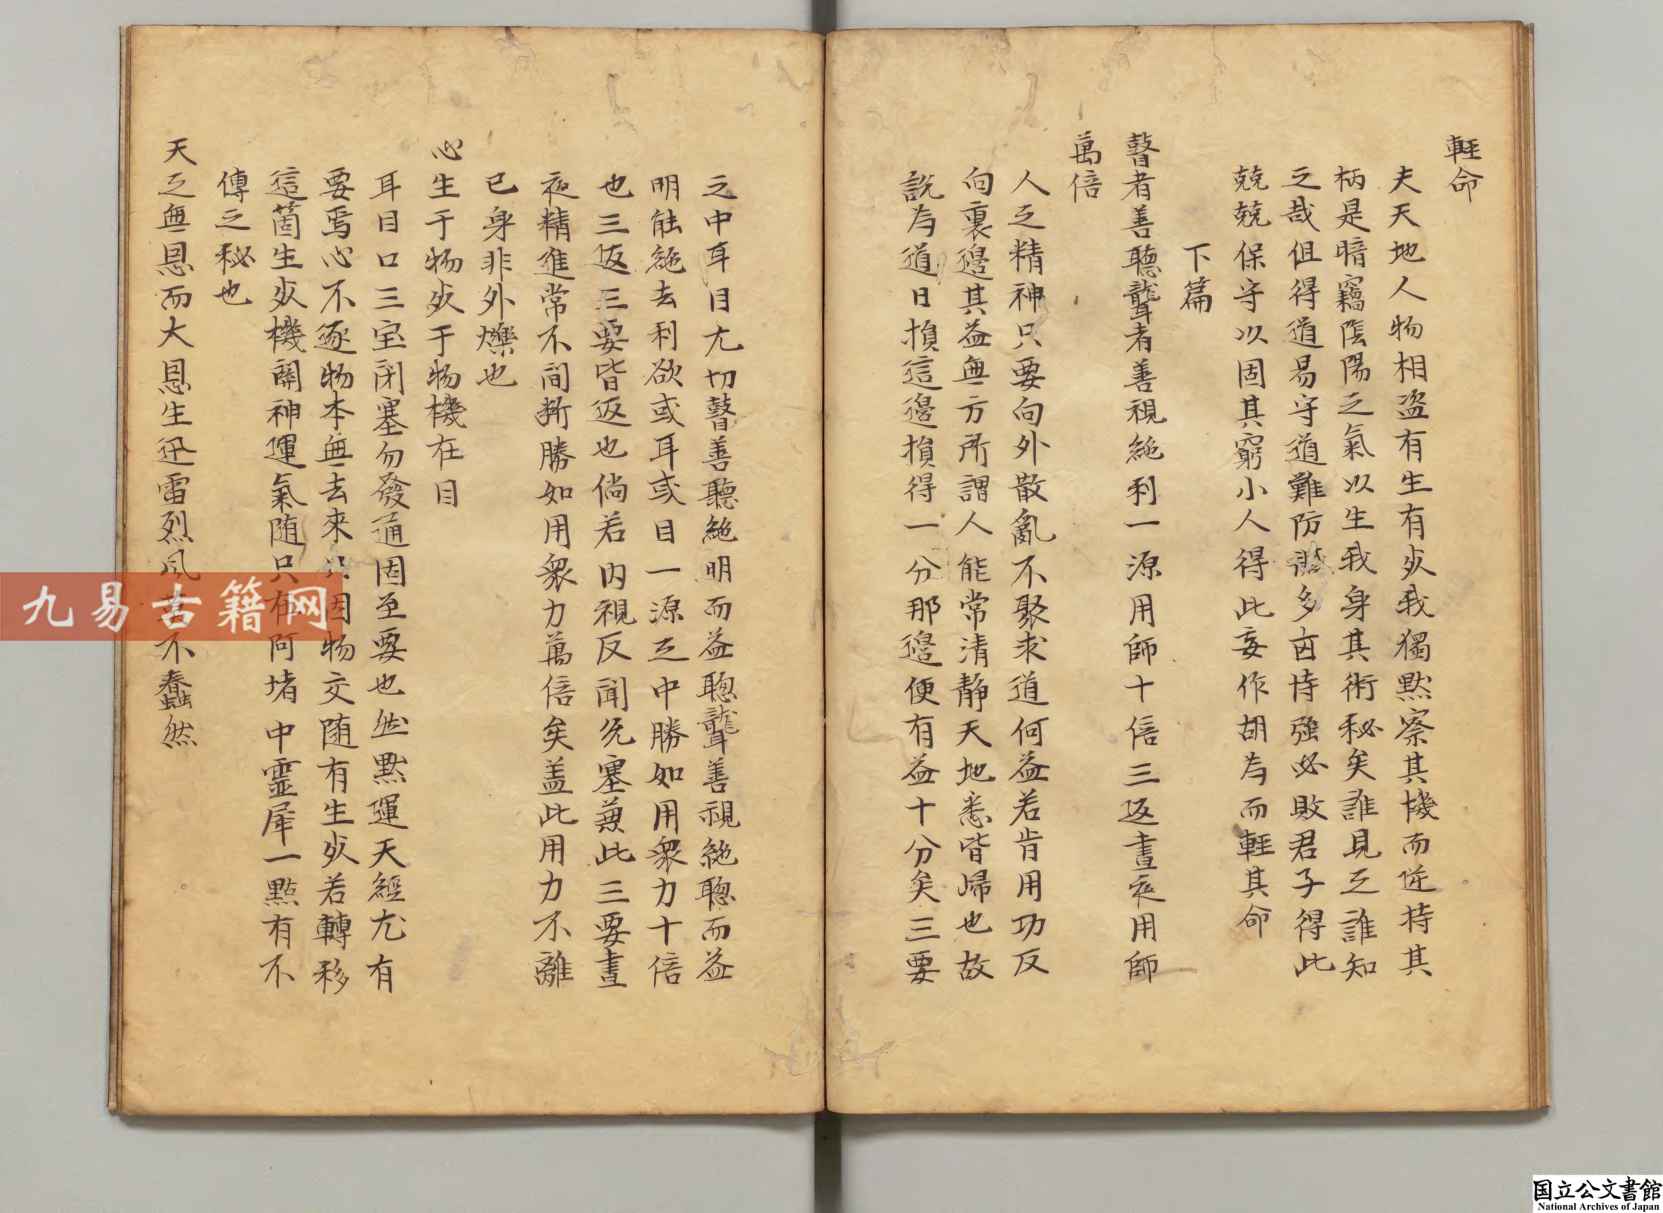 輕命
夫天地人物相盜有生有死我獨默察其機而迕持其
柄是暗竊陰陽之氣以生我身其術秘矣誰見之誰知
之哉但得道易守道難防禦多也恃強必敗君子得此
兢兢保守以固其窮小人得此妄作胡為而輕其命
下篇
瞽者善聽聾者善視絶利一源用師十倍三返晝夜用師
萬倍
人之精神只要向外散亂不聚求道何益若肯用功反
向裏邊其益無方所謂人能常清靜天地悉皆歸也故
說為道日損這邊損得一分那邊便有益十分矣三要
之中耳目尤切瞽善聽絶明而益聰聾善視絶聰而益
明能絶去利欲或耳或目一源之中勝如用衆力十倍
也三返三要皆返也倘若内視反聞兌塞兼此三要晝
夜精進常不间斷勝如用衆力萬倍矣盖此用力不離
已身非外爍也
心生于物死于物機在目
耳目口三宝闭塞勿發通固至要也然默運天經尤有
要焉心不逐物本無去來只因物交随有生死若轉移
這箇生死機關神運氣随只在阿堵中靈犀一點有不
傳之秘也
天之無恩而大恩生迅雷烈風莫不蠢然
九易古籍网
国立公文書館
National Archives of Japan